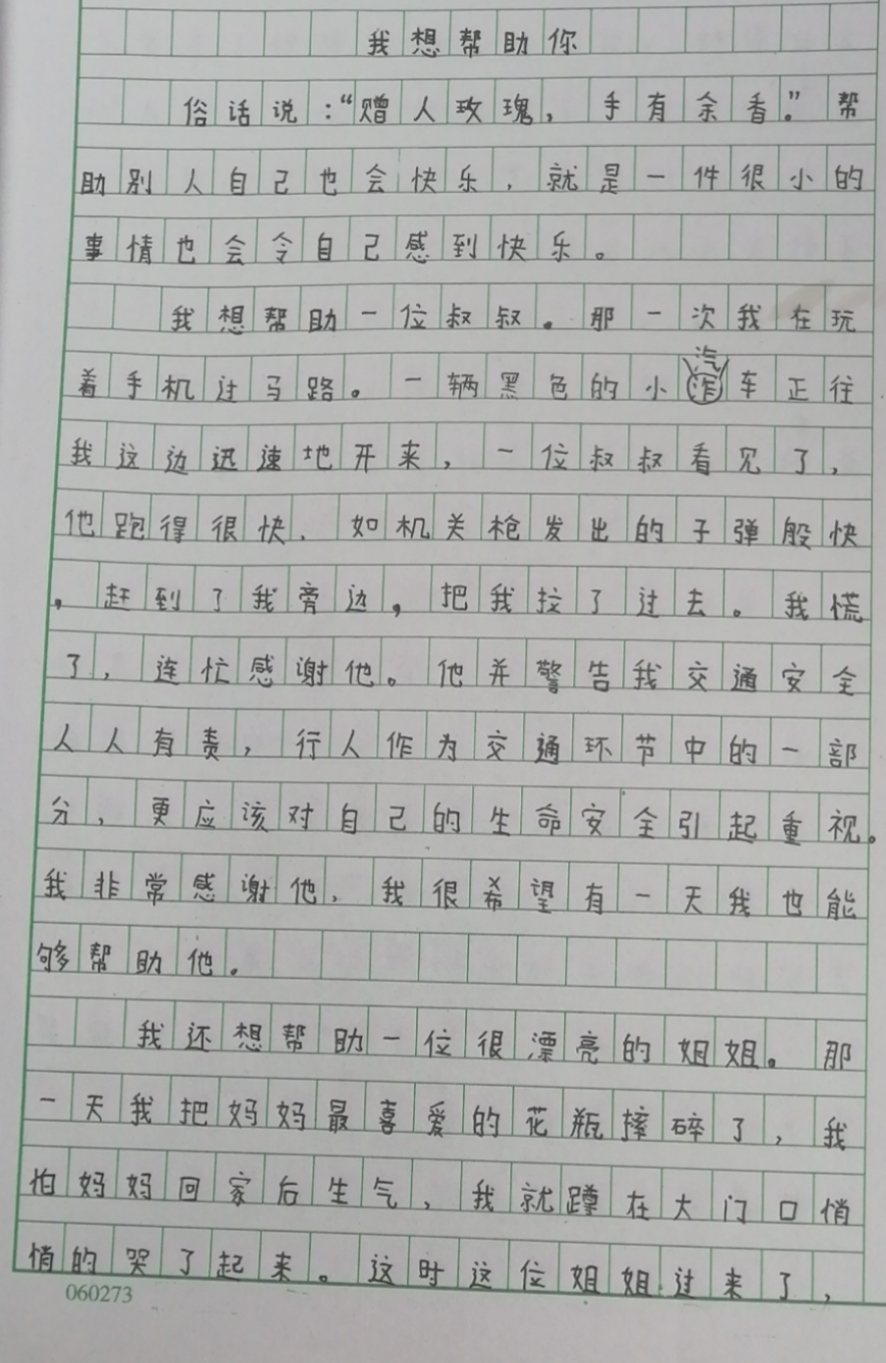 我想帮助你
俗话说：“赠人玫瑰，手有余香”。帮
助别人自己也会快乐，就是一件很小的
事情也会令自己感到快乐。
我想帮助一位叔叔。那一次我在玩
着手机过马路。一辆黑色的小汽车正往
我这边迅速地开来，一位叔叔看见了，
他跑得很快，如机关枪发出的子弹般快
，赶到了我旁边，把我拉了过去。我慌
了，连忙感谢他。他并警告我交通安全
人人有责，行人作为交通环节中的一部
分，更应该对自己的生命安全引起重视。
我非常感谢他，我很希望有一天我也能
够帮助他。
我还想帮助一位很漂亮的姐姐。那
一天我把妈妈最喜爱的花瓶摔碎了，我
怕妈妈回家后生气，我就蹲在大门口悄
悄的哭了起来。这时这位姐姐过来了，
060273